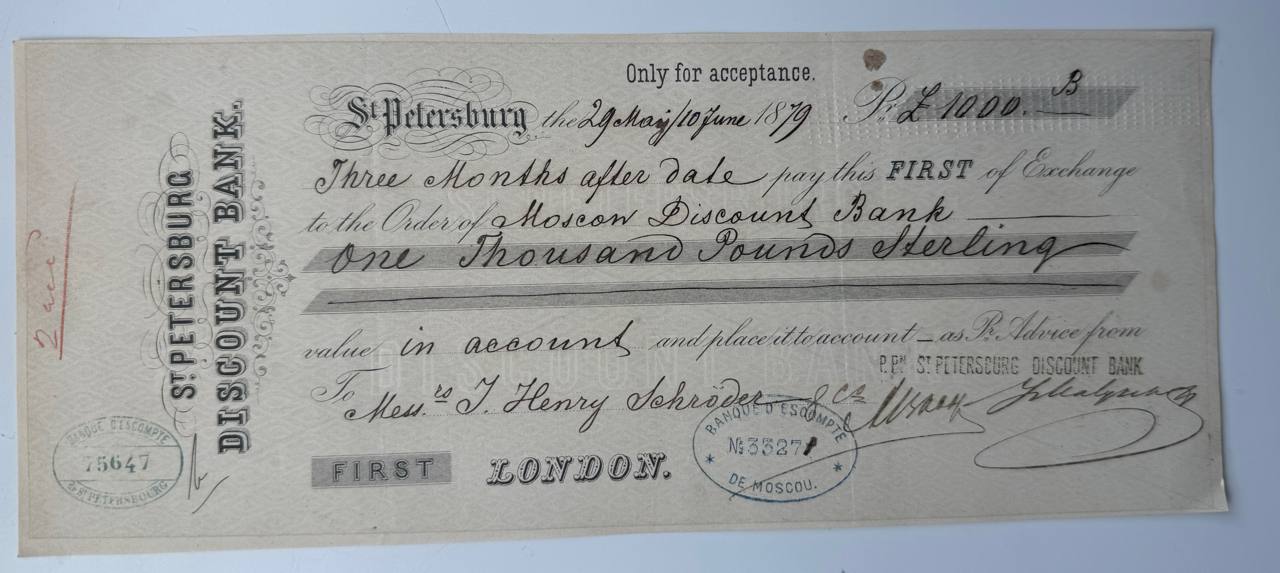 Only for acceptance.
St Petersburg the 29 May/10 June 1879 Pr £ 1000. — B
Three Months after date pay this FIRST of Exchange
to the Order of Moscow Discount Bank
One Thousand Pounds Sterling
value in account and place it to account — as Pr. Advice from
P. Pn ST PETERSBURG DISCOUNT BANK
To Mess.rs J. Henry Schröder & Co
FIRST LONDON.
ST. PETERSBURG
DISCOUNT BANK.
BANQUE D'ESCOMPTE
75647
de ST. PETERSBOURG
BANQUE D'ESCOMPTE
No 33271
DE MOSCOU.